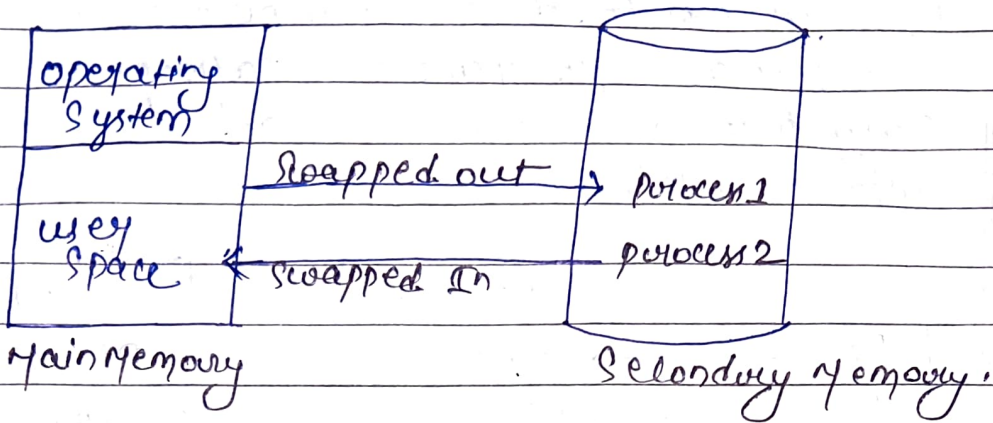 Operating
System
Swapped out
process1
user
space
process2
swapped In
Main Memory
Secondary Memory.